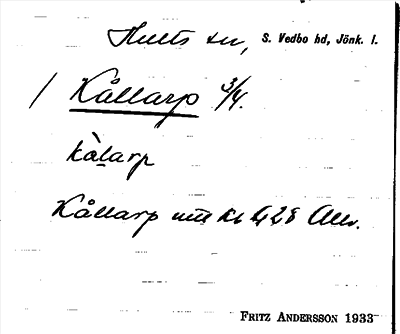 Hults sn, S. Vedbo hd, Jönk. l.
/ Kållarp 3/4.
kålarp
Kållarp mtl Kr 428 Allm.
FRITZ ANDERSSON 1933